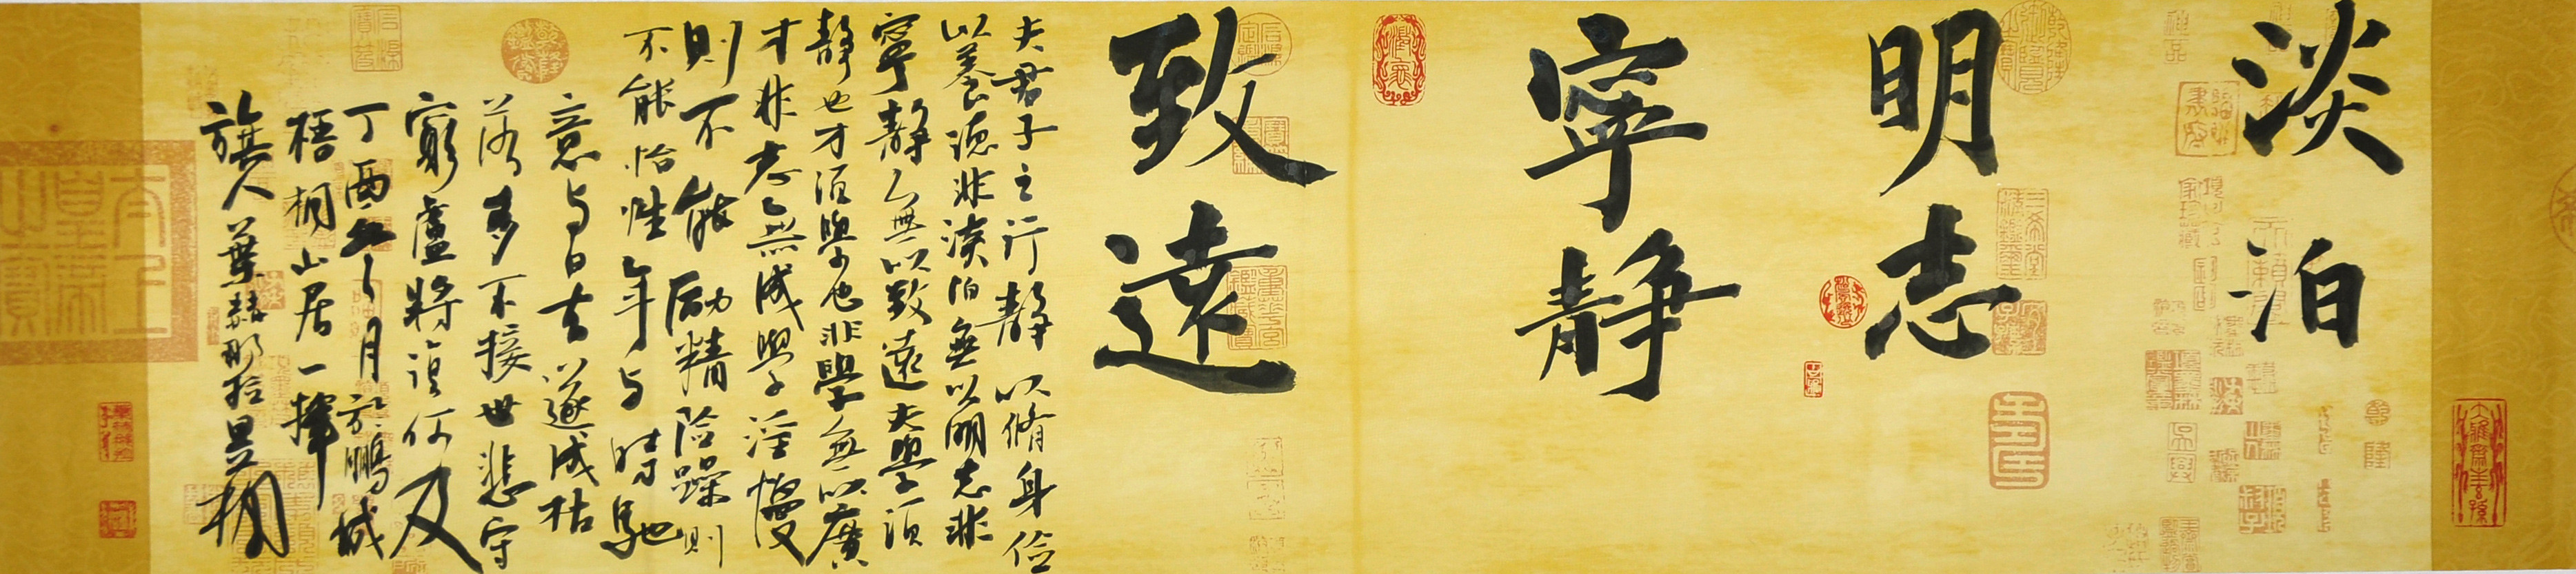 淡泊
明志
寧靜
致遠
夫君子之行靜以脩身俭
以養德非淡泊無以明志非
寧靜無以致遠夫學須
靜也才須學也非學無以廣
才非志無成學淫慢
則不能励精险躁則
不能怡性年与時馳
意与日去遂成枯
落多不接世悲守
窮盧將復何及
丁酉年月於鵬城
梧桐山居一揮
旗人葉赫那拉昱桐